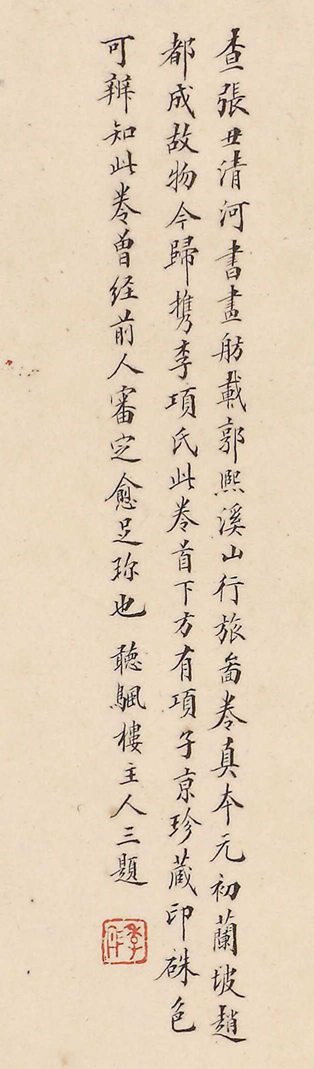 查張丑清河書畫舫載郭熙溪山行旅啚卷真本元初蘭坡趙
都成故物今歸檇李項氏此卷首下方有項子京珍藏印硃色
可辨知此卷曾経前人審定愈足珎也 聽颿樓主人三題
季彤